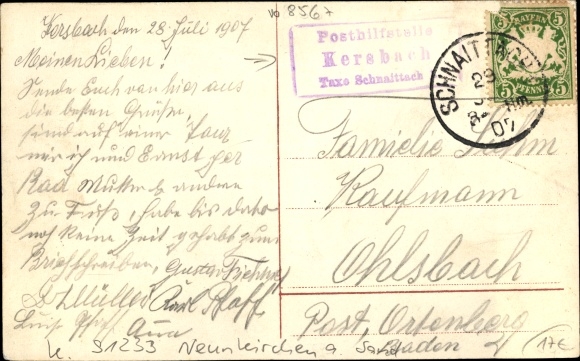 Kersbach den 28. Juli 1907
Meine Lieben!
Sende Euch von hier aus
die besten Grüße,
sind auf einer Tour
wir ich und Ernst per
Rad Mutter & andere
zu Fuß, habe bis dato
noch keine Zeit gehabt zum
Briefschreiben, Gustav
Müller Karl Pfaff
Anna
8567
Posthilfstelle
Kersbach
Taxe Schnaittach
SCHNAITTACH
Nm.
07
BAYERN
5 5
PFENNIG
5 5
Familie
Kaufmann
Ohlsbach
Post, Ortenberg
Baden
K. 91233 Neunkirchen a. Sand
17€